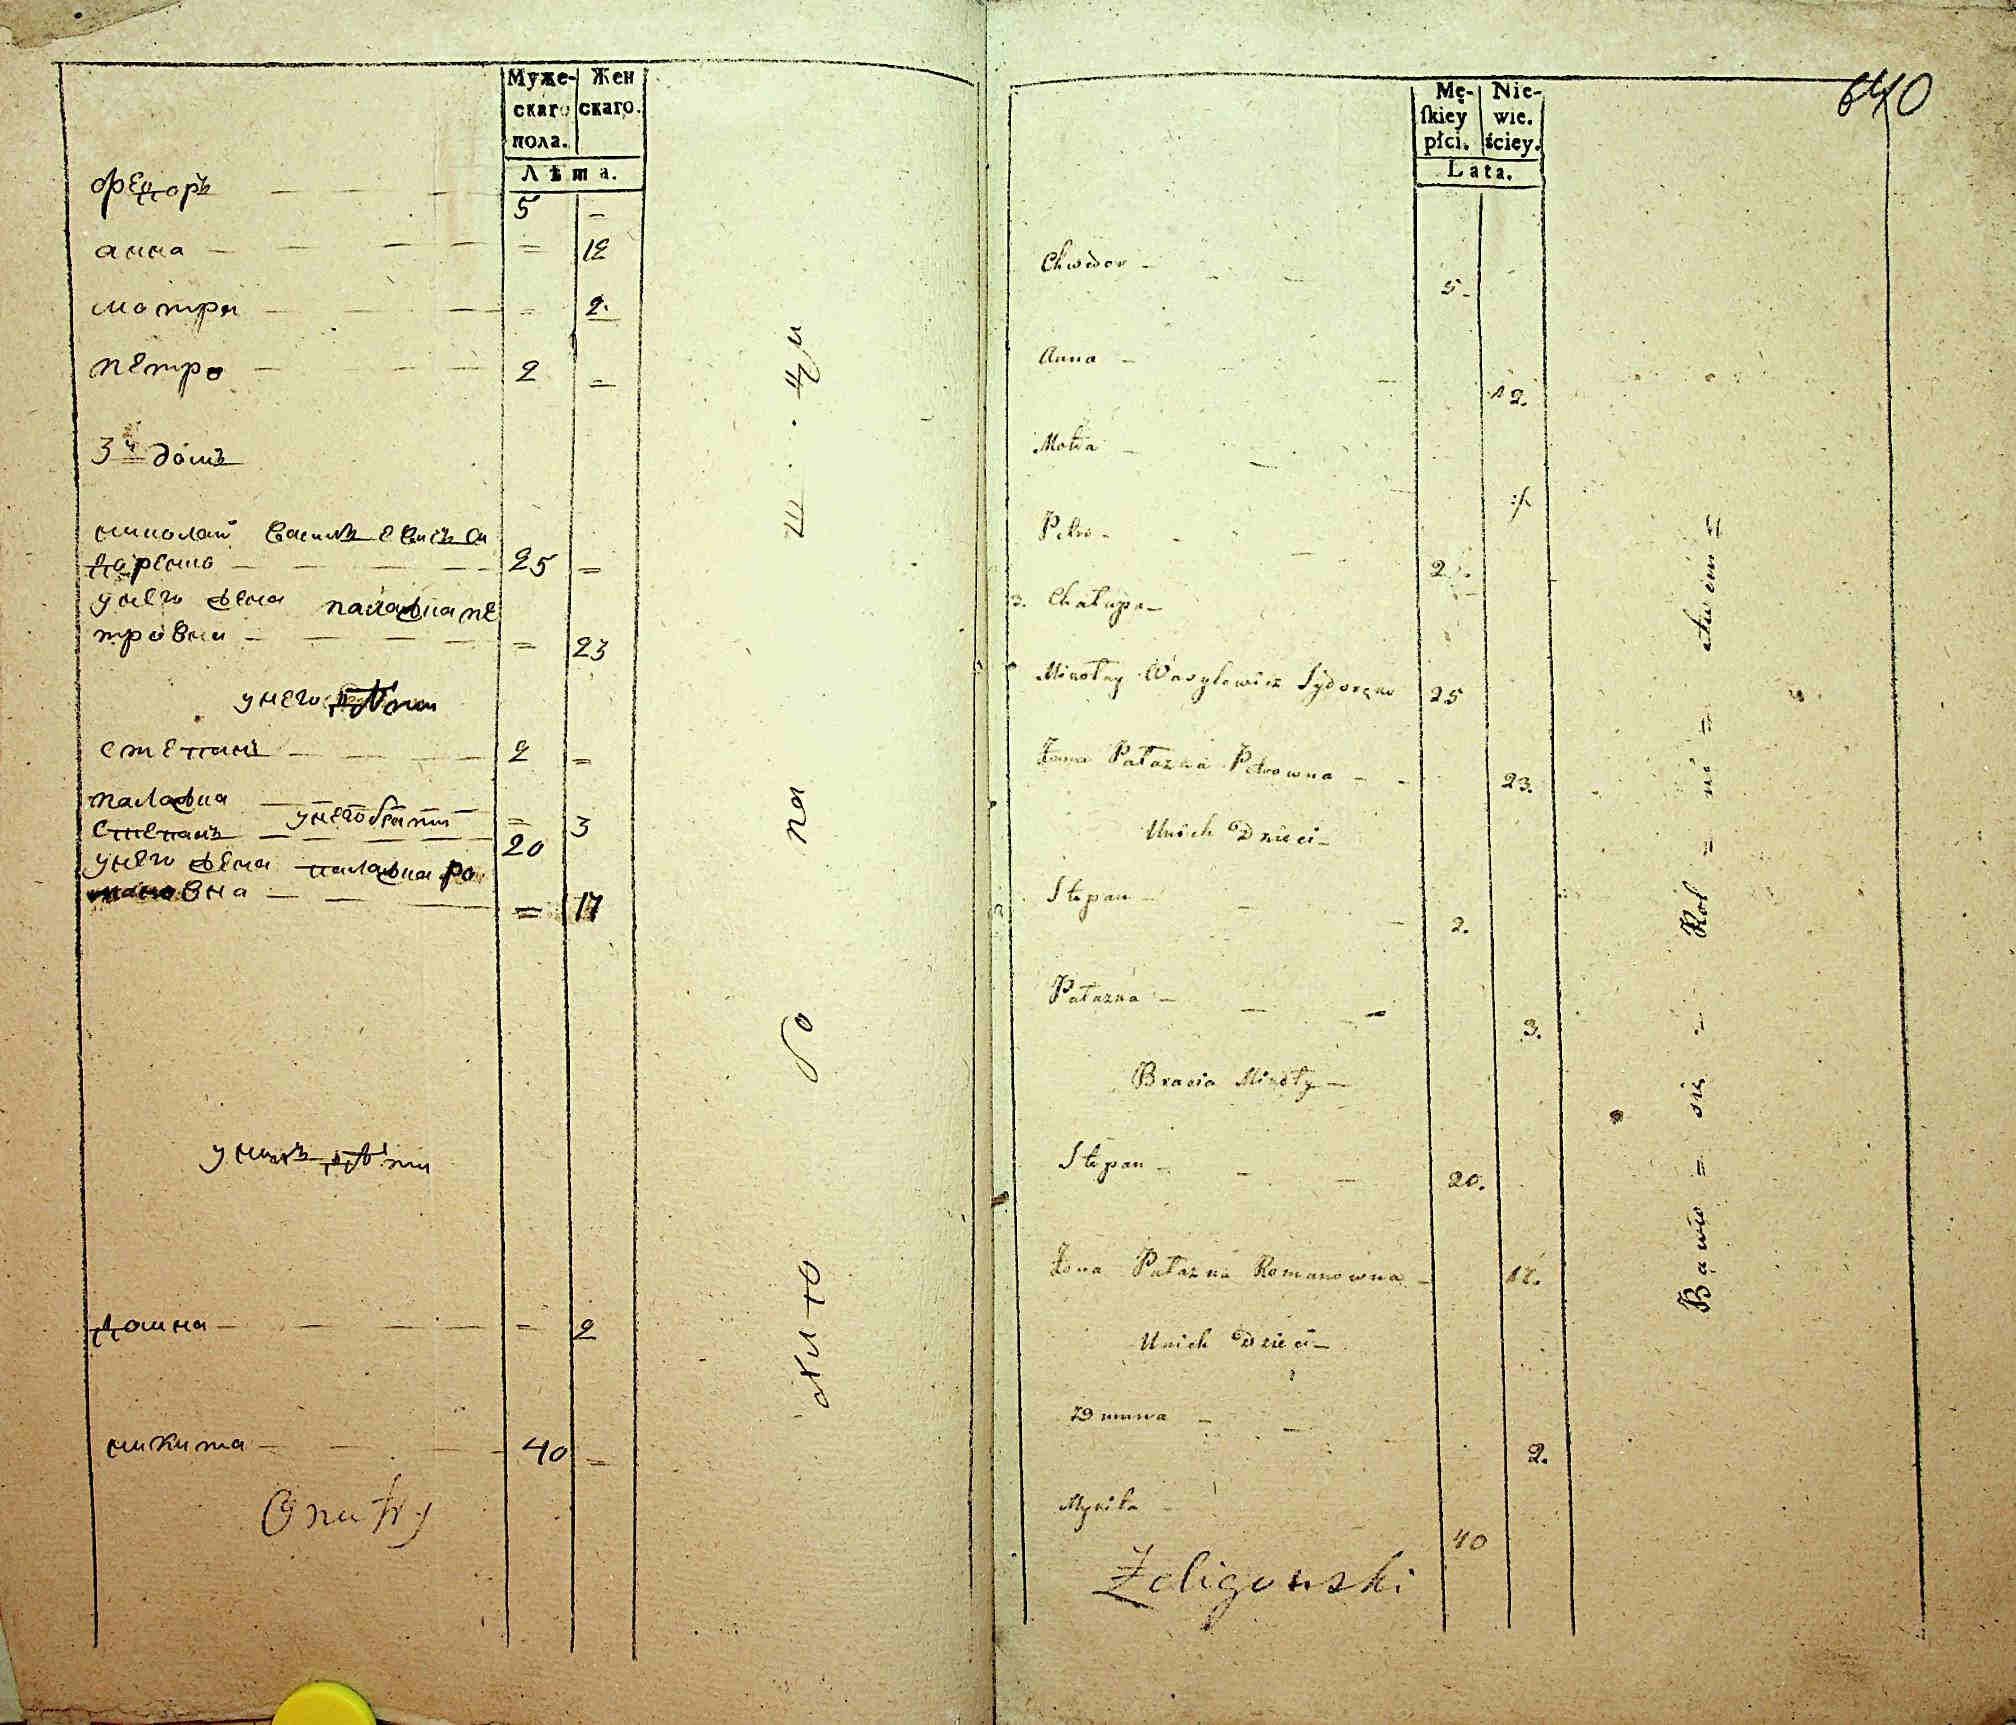 Муже- Жен
скаго скаго.
пола.
Лѣта.
Федоръ — — — 5 —
анна — — — — = 12
мотря — — — = 2.
петро — — — 2 =
3й домъ
николай василевичъ си
доренко — — — — 25 =
унего жена палажка пе
тровна — — — — = 23
унего дѣти
степанъ — — — 2 =
палажка — — = 3
унего братъ
степанъ — — — 20
унего жена палажка ро
мановна — — — = 17
унихъ дѣти
домна — — — — = 2
никита — — — 40 =
Onufry
жито
бо
па
640
Mę- Nie-
skiey wie.
płci. ściey.
Lata.
Chwedor — 5.
Anna — 12.
Motra —
Petro — 2.
3. Chałupa —
Mikołay Wasylewicz Sydorenko 25
Żona Pałazka Petrowna — 23.
Unich Dzieci —
Stepan — 2.
Pałazka — 3.
Bracia Mikoły —
Stepan — 20.
Żona Pałazka Romanowna — 17.
Unich Dzieci —
Domna — 2.
Mykita — 40
Żeligowski
Bawio = sie — Rol = ni =